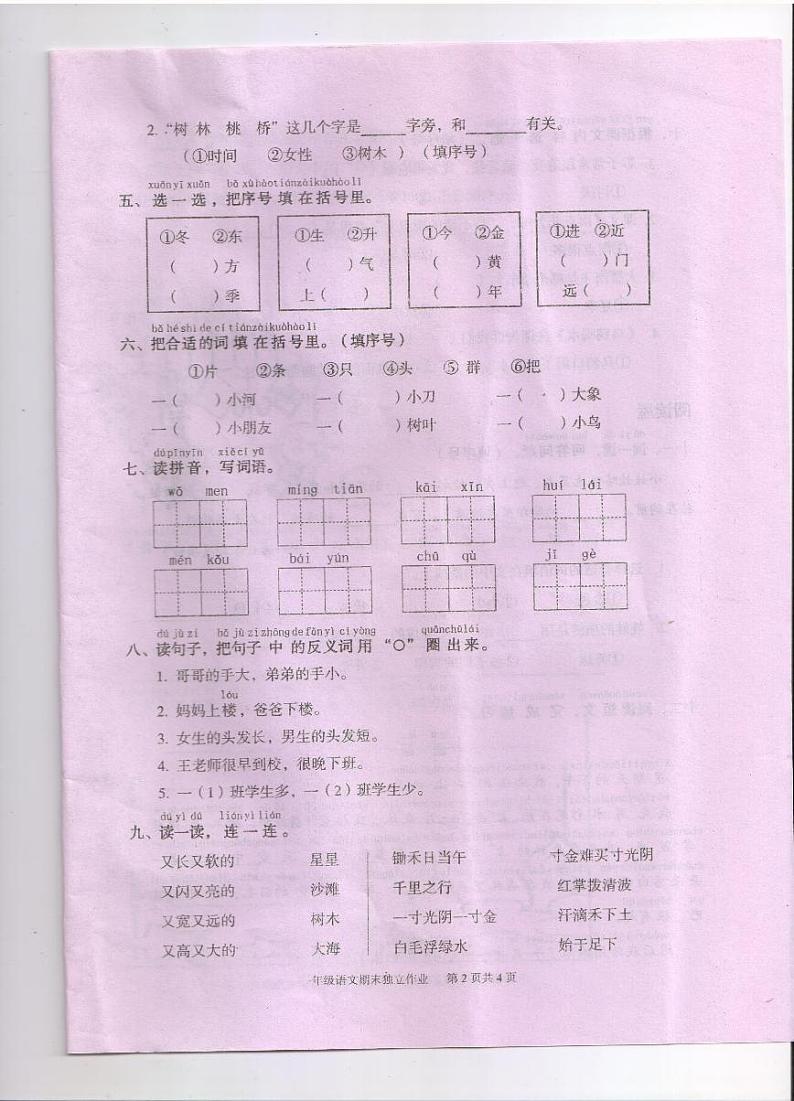 2. “树 林 桃 桥”这几个字是_____字旁，和______有关。
（①时间 ②女性 ③树木 ）（填序号）
xuǎn yi xuǎn bǎ xù hào tián zài kuò hào lǐ
五、选一选，把序号填在括号里。
①冬 ②东 ①生 ②升 ①今 ②金 ①进 ②近
（ ）方 （ ）气 （ ）黄 （ ）门
（ ）季 上（ ） （ ）年 远（ ）
bǎ hé shì de cí tián zài kuò hào lǐ
六、把合适的词填在括号里。（填序号）
①片 ②条 ③只 ④头 ⑤ 群 ⑥把
一（ ）小河 一（ ）小刀 一（ ）大象
一（ ）小朋友 一（ ）树叶 一（ ）小鸟
dú pīn yīn xiě cí yǔ
七、读拼音，写词语。
wǒ men míng tiān kāi xīn huí lái
mén kǒu bái yún chū qù jǐ gè
dú jù zi bǎ jù zi zhōng de fǎn yì cí yòng quān chū lái
八、读句子，把句子中的反义词用“○”圈出来。
1. 哥哥的手大，弟弟的手小。
lóu
2. 妈妈上楼，爸爸下楼。
3. 女生的头发长，男生的头发短。
4. 王老师很早到校，很晚下班。
5. 一（1）班学生多，一（2）班学生少。
dú yì dú lián yì lián
九、读一读，连一连。
又长又软的 星星 锄禾日当午 寸金难买寸光阴
又闪又亮的 沙滩 千里之行 红掌拨清波
又宽又远的 树木 一寸光阴一寸金 汗滴禾下土
又高又大的 大海 白毛浮绿水 始于足下
一年级语文期末独立作业 第 2 页共 4 页